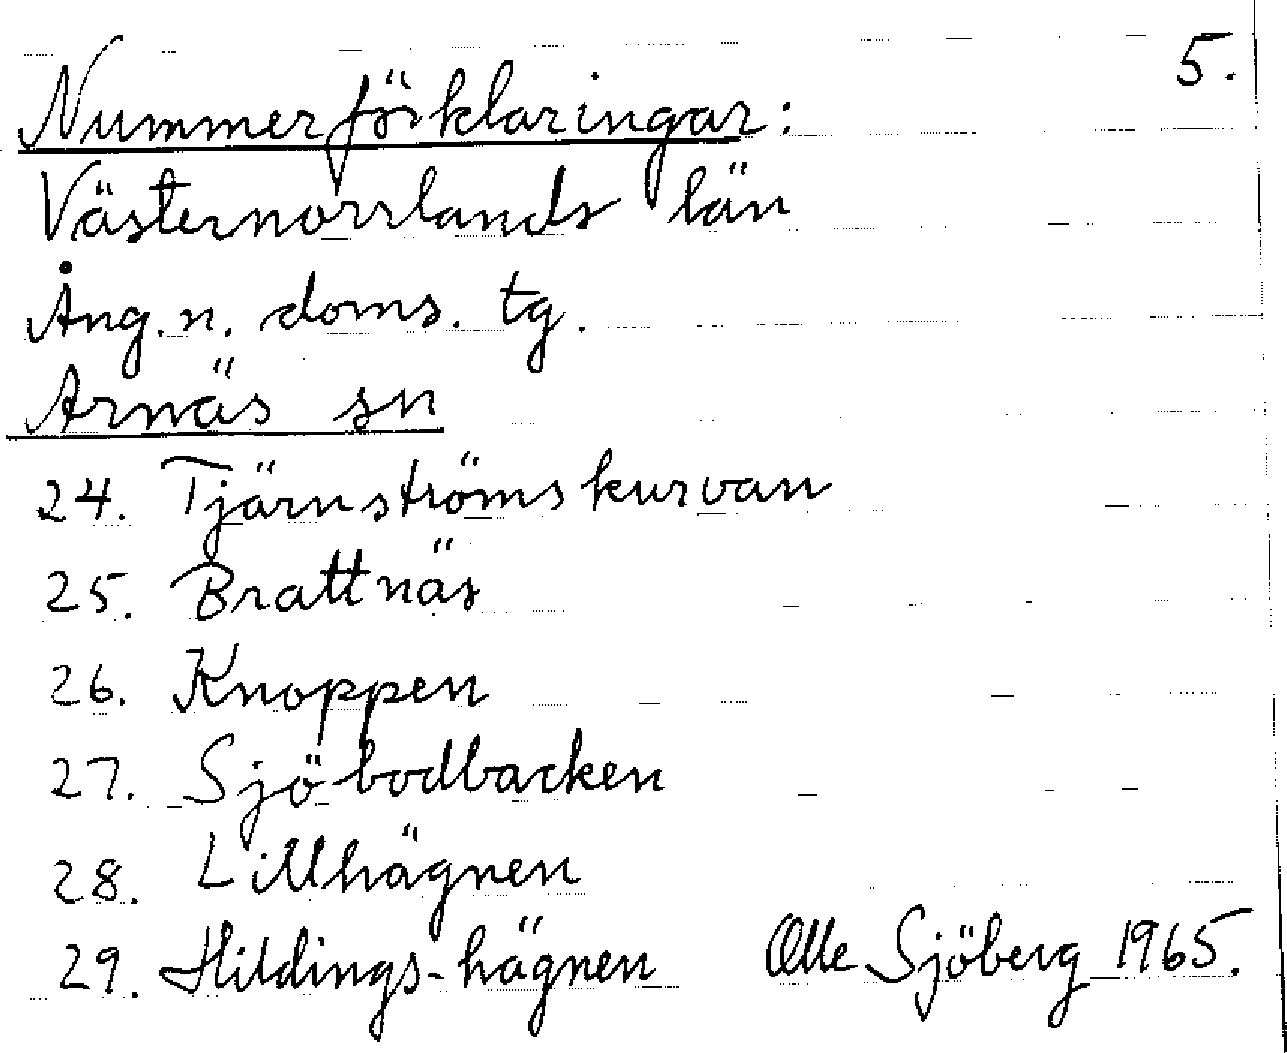 5.
Nummerförklaringar:
Västernorrlands län
Ång. n. doms. tg.
Arnäs sn
24. Tjärnströmskurvan
25. Brattnäs
26. Knoppen
27. Sjöbodbacken
28. Lillhägnen
29. Hildings-hägnen Olle Sjöberg 1965.